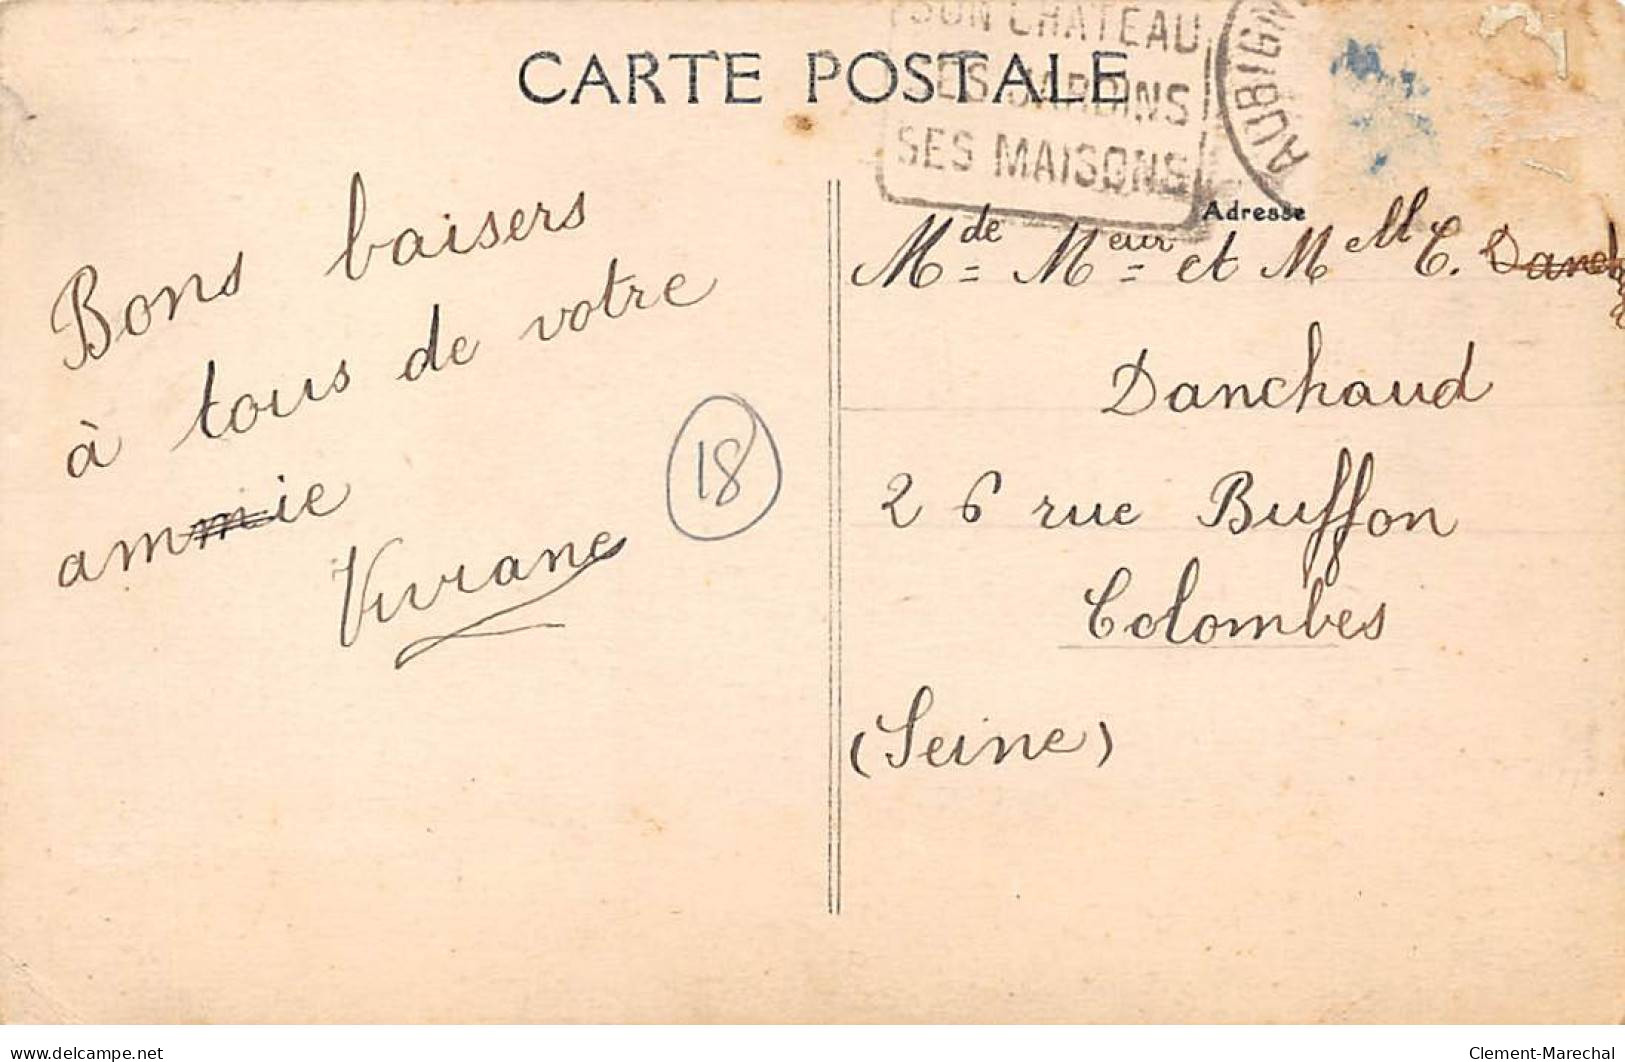 CARTE POSTALE
SON CHATEAU
SES JARDINS
SES MAISONS
AUBIGN
Adresse
Bons baisers
à tous de votre
ammie
Viviane
18
Mde Meur et Mell C. Danch
Danchaud
26 rue Buffon
Colombes
(Seine)
delcampe.net
Clement-Marechal